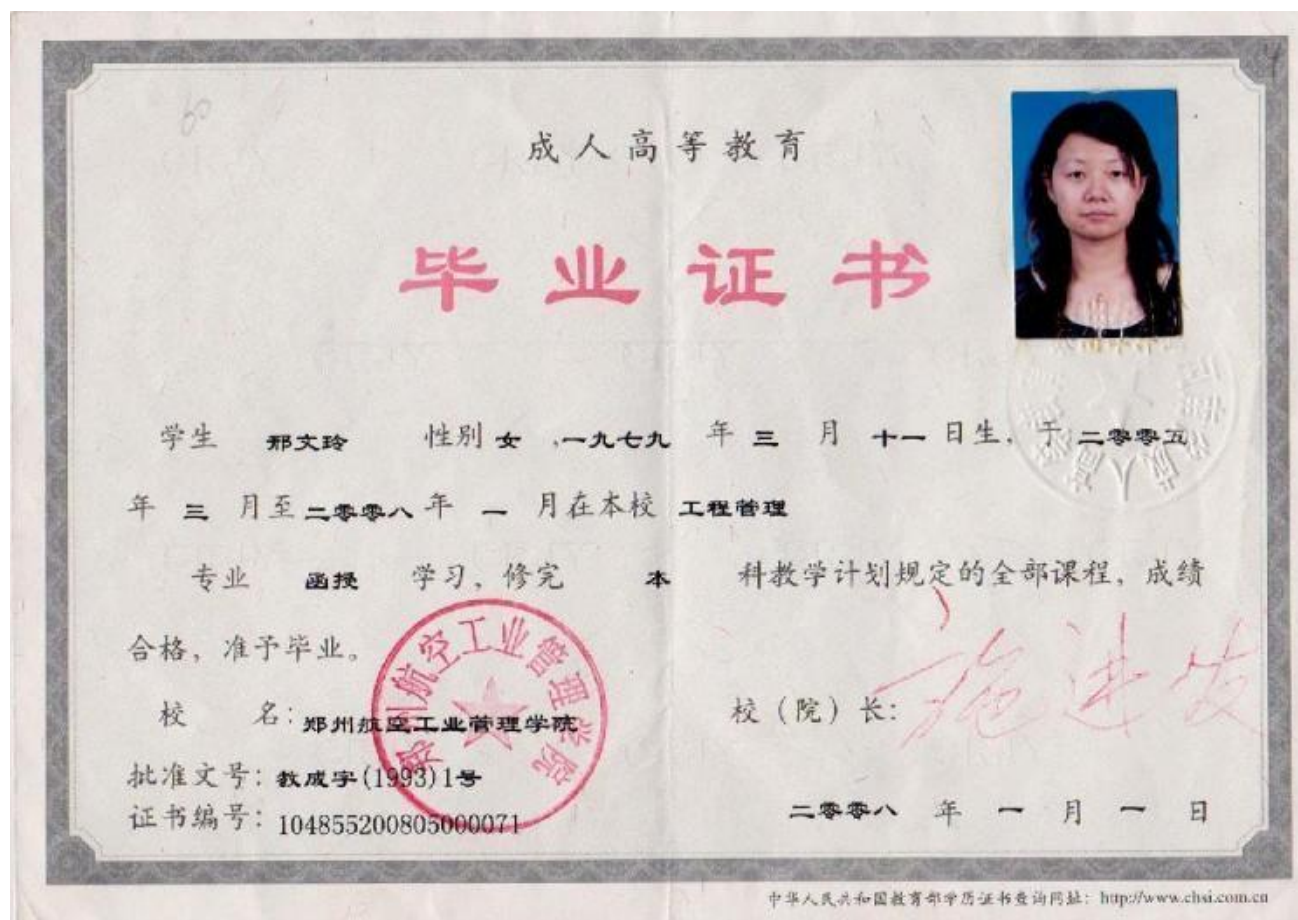 成人高等教育
毕业证书
学生 邢文玲 性别 女 ,一九七九 年 三 月 十一 日生, 于 二零零五
年 三 月至 二零零八 年 一 月在本校 工程管理
专业 函授 学习, 修完 本 科教学计划规定的全部课程, 成绩
合格, 准予毕业。
校 名: 郑州航空工业管理学院
校 (院) 长: 施进发
批准文号: 教成字(1993)1号
证书编号: 104855200805000071
二零零八 年 一 月 一 日
郑州航空工业管理学院
中华人民共和国教育部学历证书查询网址: http://www.chsi.com.cn